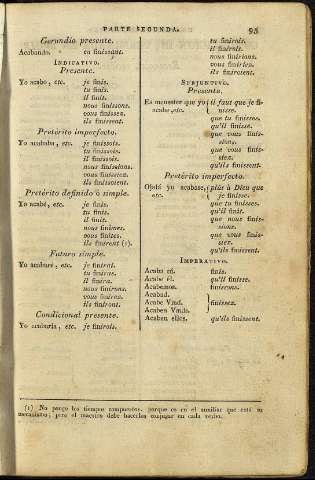 PARTE SEGUNDA. 95
Gerundio presente.
Acabando. en finissant.
INDICATIVO.
Presente.
Yo acabo, etc. je finis.
tu finis.
il finit.
nous finissons.
vous finissez.
ils finissent.
Pretérito imperfecto.
Yo acababa, etc. je finissois.
tu finissois.
il finissoit.
nous finissions.
vous finissiez.
ils finissoient.
Pretérito definido ó simple.
Yo acabé, etc. je finis.
tu finis.
il finit.
nous finîmes.
vous finîtes.
ils finirent (1).
Futuro simple.
Yo acabaré, etc. je finirai.
tu finiras.
il finira.
nous finirons.
vous finirez.
ils finiront.
Condicional presente.
Yo acabaría, etc. je finirois.
tu finirois.
il finiroit.
nous finirions.
vous finiriez.
ils finiroient.
SUBJUNTIVO.
Presente.
Es menester que yo il faut que je fi-
acabe, etc. nisse.
que tu finisses.
qu'il finisse.
que vous finis-
sions.
que vous finis-
siez.
qu'ils finissent.
Pretérito imperfecto.
Ojalá yo acabase, plût à Dieu que
etc. je finisse.
que tu finisses.
qu'il finît.
que nous finis-
sions.
que vous finis-
siez.
qu'ils finissent.
IMPERATIVO.
Acaba tú. finis.
Acabe él. qu'il finisse.
Acabemos. finissons.
Acabad.
Acabe Vmd. finissez.
Acaben Vmds.
Acaben ellos. qu'ils finissent.
(1) No pongo los tiempos compuestos, porque es en el auxiliar que está su
mecanismo; pero el maestro debe hacerlos conjugar en cada verbo.